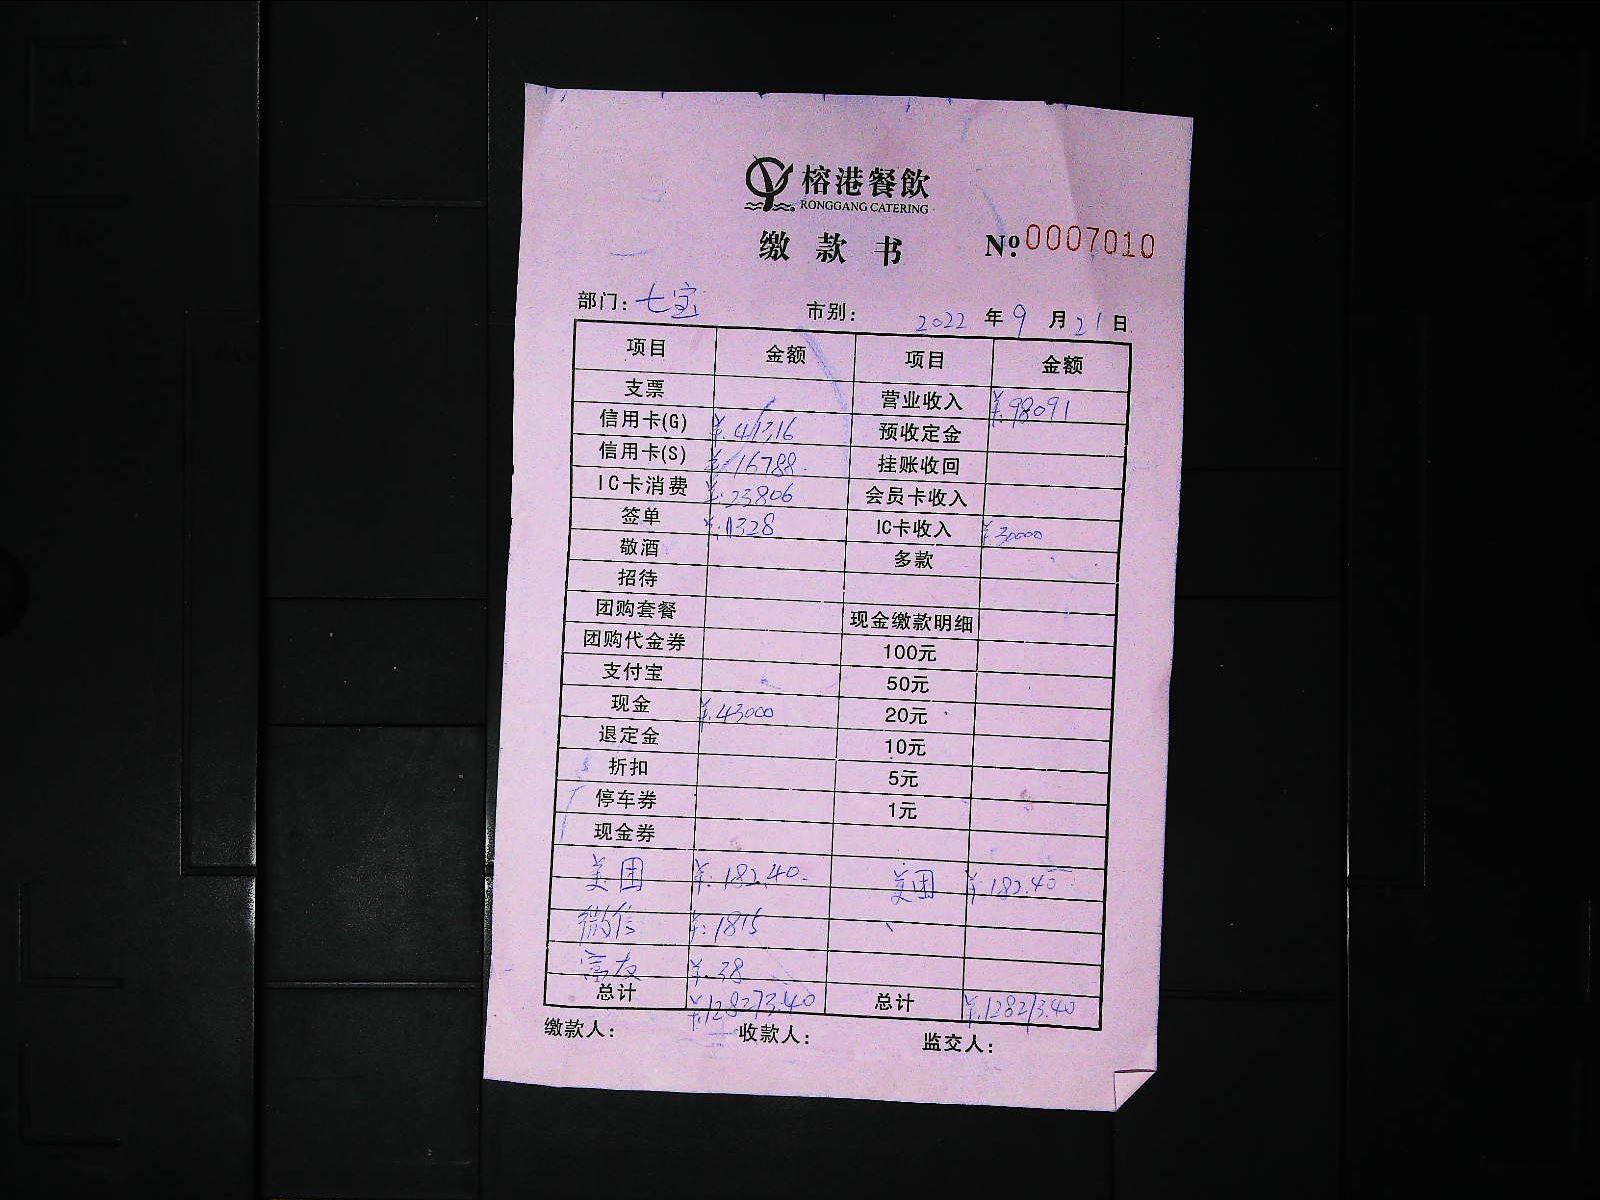 榕港餐飲
RONGGANG CATERING
缴款书 Nº 0007010
部门: 七宝 市别: 2022 年 9 月 21 日
项目 金额 项目 金额
支票 营业收入 ¥.98091
信用卡(G) ¥.41316 预收定金
信用卡(S) ¥.16788 挂账收回
IC卡消费 ¥.23806 会员卡收入
签单 ¥.1328 IC卡收入 ¥30000
敬酒 多款
招待
团购套餐 现金缴款明细
团购代金券 100元
支付宝 50元
现金 ¥.43000 20元
退定金 10元
折扣 5元
停车券 1元
现金券
美团 ¥.182.40. 美团 ¥.182.40.
微信 ¥:1815
富友 ¥.38
总计 ¥.128273.40 总计 ¥.128273.40
缴款人: 收款人: 监交人: